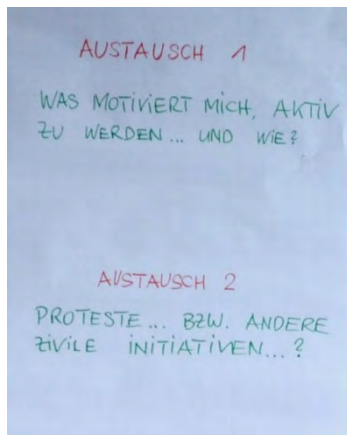 AUSTAUSCH 1
WAS MOTIVIERT MICH, AKTIV
ZU WERDEN... UND WIE?
AUSTAUSCH 2
PROTESTE... BZW. ANDERE
ZIVILE INITIATIVEN...?